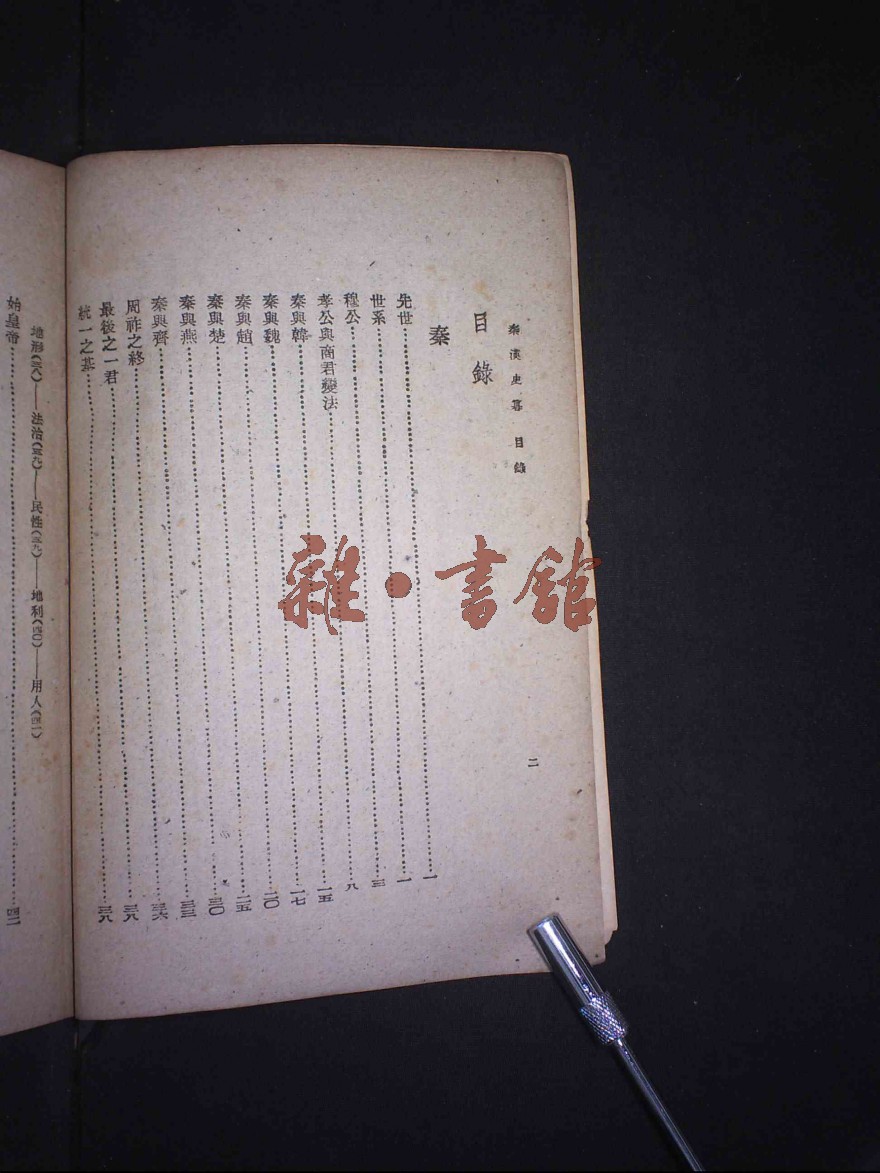 秦漢史纂 目錄
二
目錄
秦
先世……一
世系……一
穆公……三
孝公與商君變法……八
秦與韓……一五
秦與魏……一七
秦與趙……二〇
秦與楚……二五
秦與燕……三〇
秦與齊……三三
周祚之終……三六
最後之一君……三八
統一之基……三八
地形(三八)——法治(三九)——民性(三九)——地利(四〇)——用人(四一)
始皇帝……四二
雜·書館